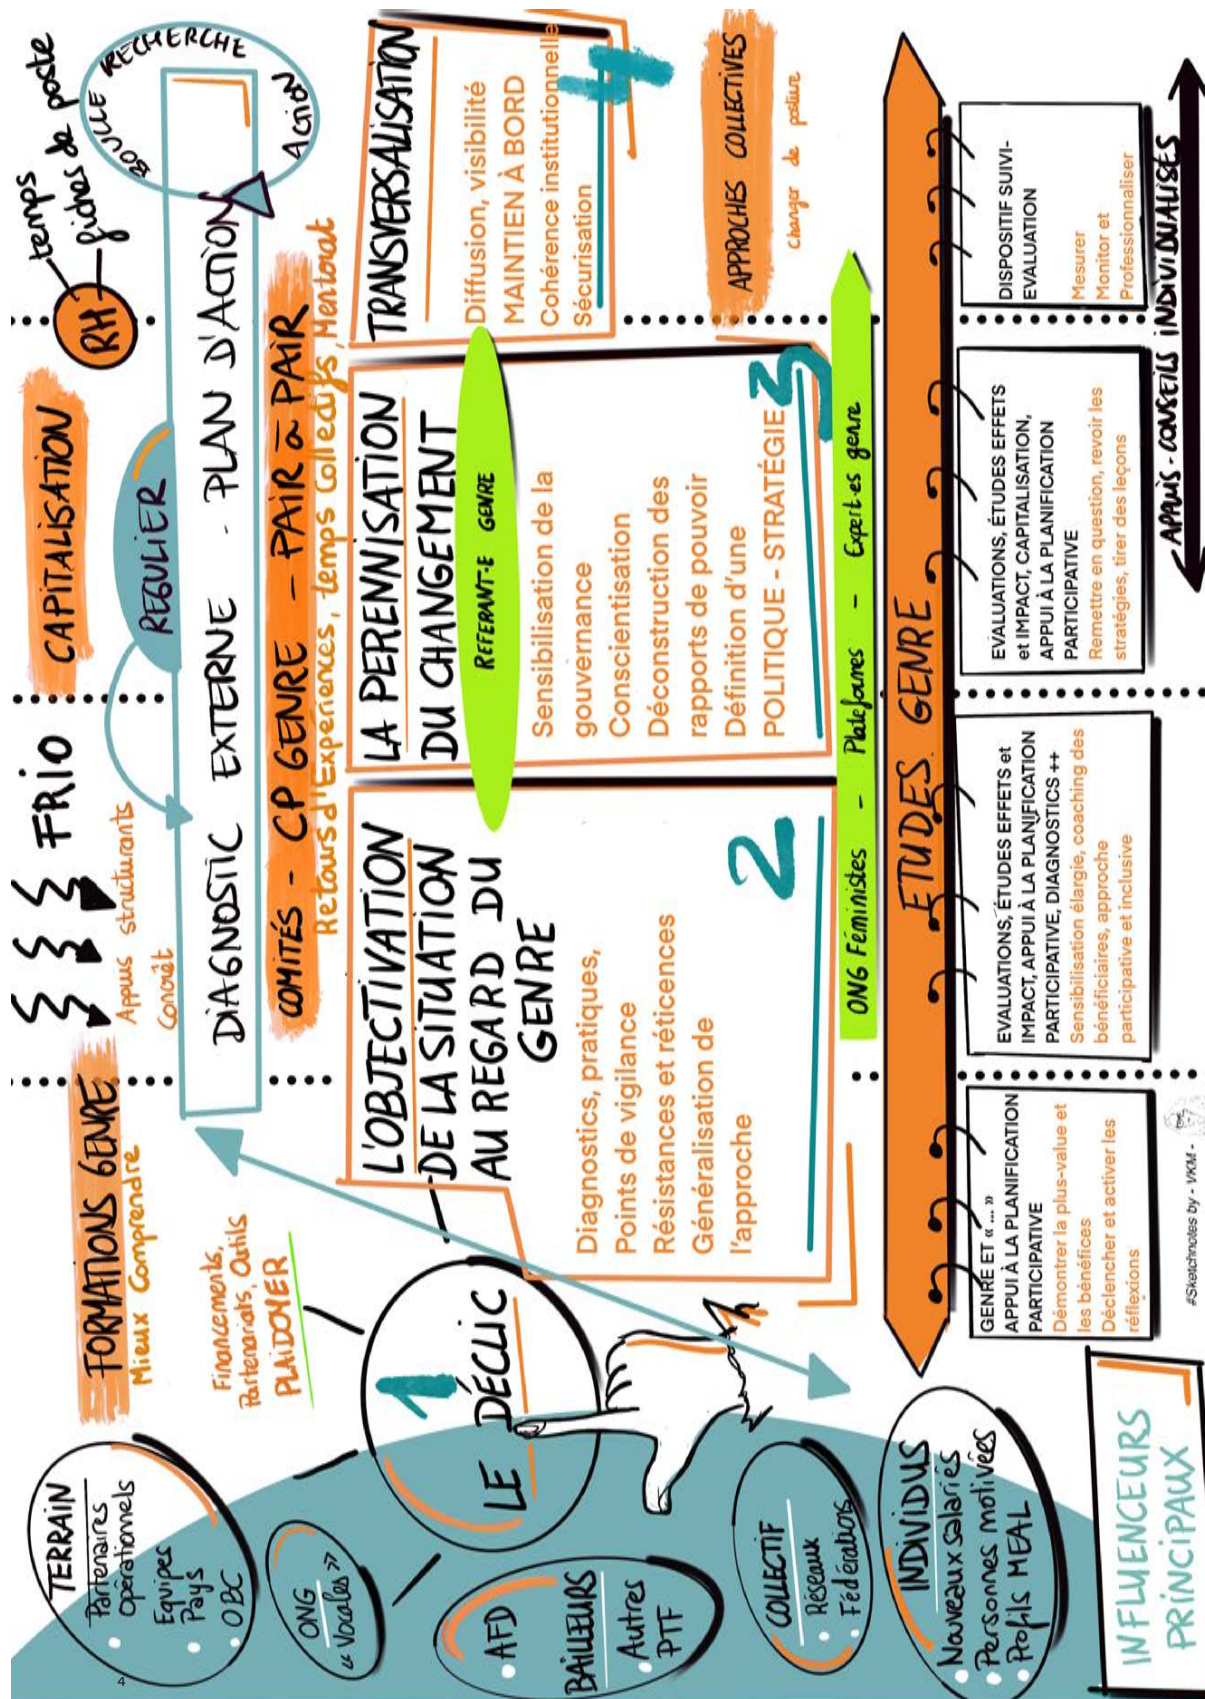 TERRAIN
• Partenaires
opérationnels
• Equipes
Pays
• OBC
ONG
« Vocales »
• AFD
BAILLEURS
• Autres
PTF
COLLECTIF
• Réseaux
• Fédérations
INDIVIDUS
• Nouveaux salariés
• Personnes motivées
• Profils MEAL
INFLUENCEURS
PRINCIPAUX
FORMATIONS GENRE
Mieux Comprendre
Financements,
Partenariats, Outils
PLAIDOYER
1
LE DÉCLIC
FRIO
Appuis structurants
Concrêt
CAPITALISATION
REGULIER
RH
temps
fiches de poste
BOUCLE RECHERCHE
ACTION
DIAGNOSTIC EXTERNE - PLAN D'ACTION
COMITÉS - CP GENRE - PAIR à PAIR
Retours d'Expériences, temps Collectifs, Mentorat
L'OBJECTIVATION
DE LA SITUATION
AU REGARD DU
GENRE
Diagnostics, pratiques,
Points de vigilance
Résistances et réticences
Généralisation de
l'approche
2
LA PERENNISATION
DU CHANGEMENT
REFERANT·E GENRE
Sensibilisation de la
gouvernance
Conscientisation
Déconstruction des
rapports de pouvoir
Définition d'une
POLITIQUE - STRATÉGIE
3
TRANSVERSALISATION
Diffusion, visibilité
MAINTIEN À BORD
Cohérence institutionnelle
Sécurisation
4
APPROCHES COLLECTIVES
Changer de posture
ONG Féministes - Plateformes - Expert·es genre
ETUDES GENRE
GENRE ET « ... »
APPUI À LA PLANIFICATION
PARTICIPATIVE
Démontrer la plus-value et
les bénéfices
Déclencher et activer les
réflexions
EVALUATIONS, ÉTUDES EFFETS et
IMPACT, APPUI À LA PLANIFICATION
PARTICIPATIVE, DIAGNOSTICS ++
Sensibilisation élargie, coaching des
bénéficiaires, approche
participative et inclusive
EVALUATIONS, ÉTUDES EFFETS
et IMPACT, CAPITALISATION,
APPUI À LA PLANIFICATION
PARTICIPATIVE
Remettre en question, revoir les
stratégies, tirer des leçons
DISPOSITIF SUIVI-
EVALUATION
Mesurer
Monitor et
Professionnaliser
APPUIS - CONSEILS INDIVIDUALISÉS
#Sketchnotes by - VKM -
4